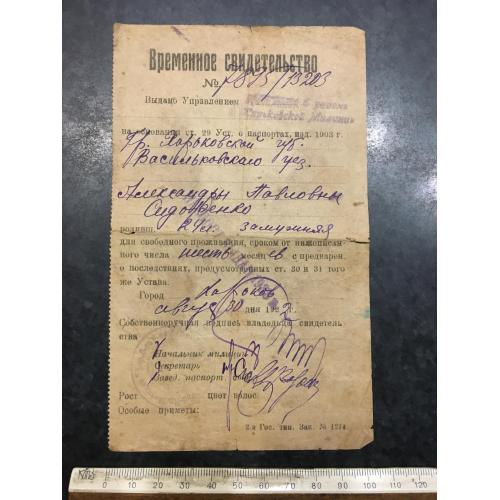 Временное свидетельство
№ 7815/13203
Выдано Управлением
на основании ст. 29 Уст. о паспортах, изд. 1903 г.
гр. Харьковской губ.
Васильковскаго уез.
Александры Павловны
родивш. замужняя
для свободного проживания, сроком от нижеписан
ного числа шесть месяцев с предварен.
о последствиях, предусмотренных ст. 30 и 31 того
же Устава.
Город Харьков
август 30 дня 192
Собственноручная подпись владельца свидетель
ства
Начальник милиции
Секретарь
Завед. паспорт.
Рост цвет волос
Особые приметы:
2-я Гос. тип. Зак. № 1214
0 10 20 30 40 50 60 70 80 90 100 110 120